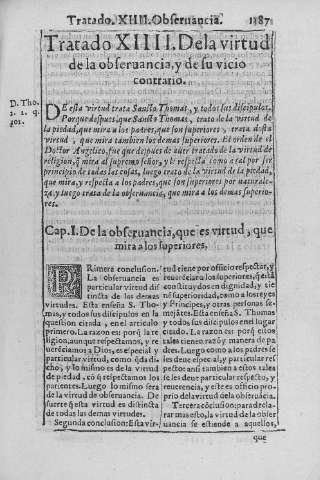 Tratado. XIIII. Obseruancia. 1187
Tratado XIIII. De la virtud
de la obseruancia, y de su vicio
contrario.
D. Tho.
2. 2. q.
101.
DE esta virtud trata Sancto Thomas, y todos sus discipulos,
Porque despues, que Sancto Thomas, trato de la virtud de
la piedad, que mira a los padres, que son superiores, trata desta
virtud, que mira tambien los demas superiores. El orden de el
Doctor Angelico, fue que despues de auer tratado de la virtud de
religion, q̃ mira al supremo señor, y le respecta como a tal por ser
principio de todas las cosas, luego trato de la virtud de la piedad,
que mira, y respecta a los padres, que son superiores por naturale-
za, y luego trato de la obseruancia, que mira a los demas superio-
res.
Cap. I. De la obseruancia, que es virtud, que
mira a los superiores,
PRimera conclusion.
La obseruancia es
particular virtud dis
tincta de las demas
virtudes. Esta enseña S. Tho-
mas, y todos sus discipulos en la
question citada, en el articulo
primero. La razon es: porq̃ la re
ligion, aunque respectamos, y re
uerẽciamos a Dios, es especial y
particular virtud, como q̃da di-
cho, y lo mismo es de la virtud
de piedad, cõ q̃ respectamos los
parientes. Luego lo mismo sera
de la virtud de obseruancia. De
suerte q̃ esta virtud es distincta
de todas las demas virtudes.
Segunda conclusion: Esta vir-
tud tiene por officio respectar, y
reuerẽciar a los superiores, q̃ estã
constituydos en dignidad, y tie
nẽ superioridad, como a los reyes
y Principes, y otras personas se-
mejãtes. Esta enseña S. Thomas
y todos sus discipulos en el lugar
citado. La razon es: porq̃ estos
tales tienen razõ y manera de pa
dres. Luego como a los padres se
les deue especial, y particular res
pecto: ansi tambien a estos tales
se les deue particular respecto, y
reuerencia, y este es officio pro-
prio de la virtud de la obseruãcia.
Tercera cõclusion: para decla-
rar mas esto, la virtud de la obser
uancia se estiende a aquellos,
que